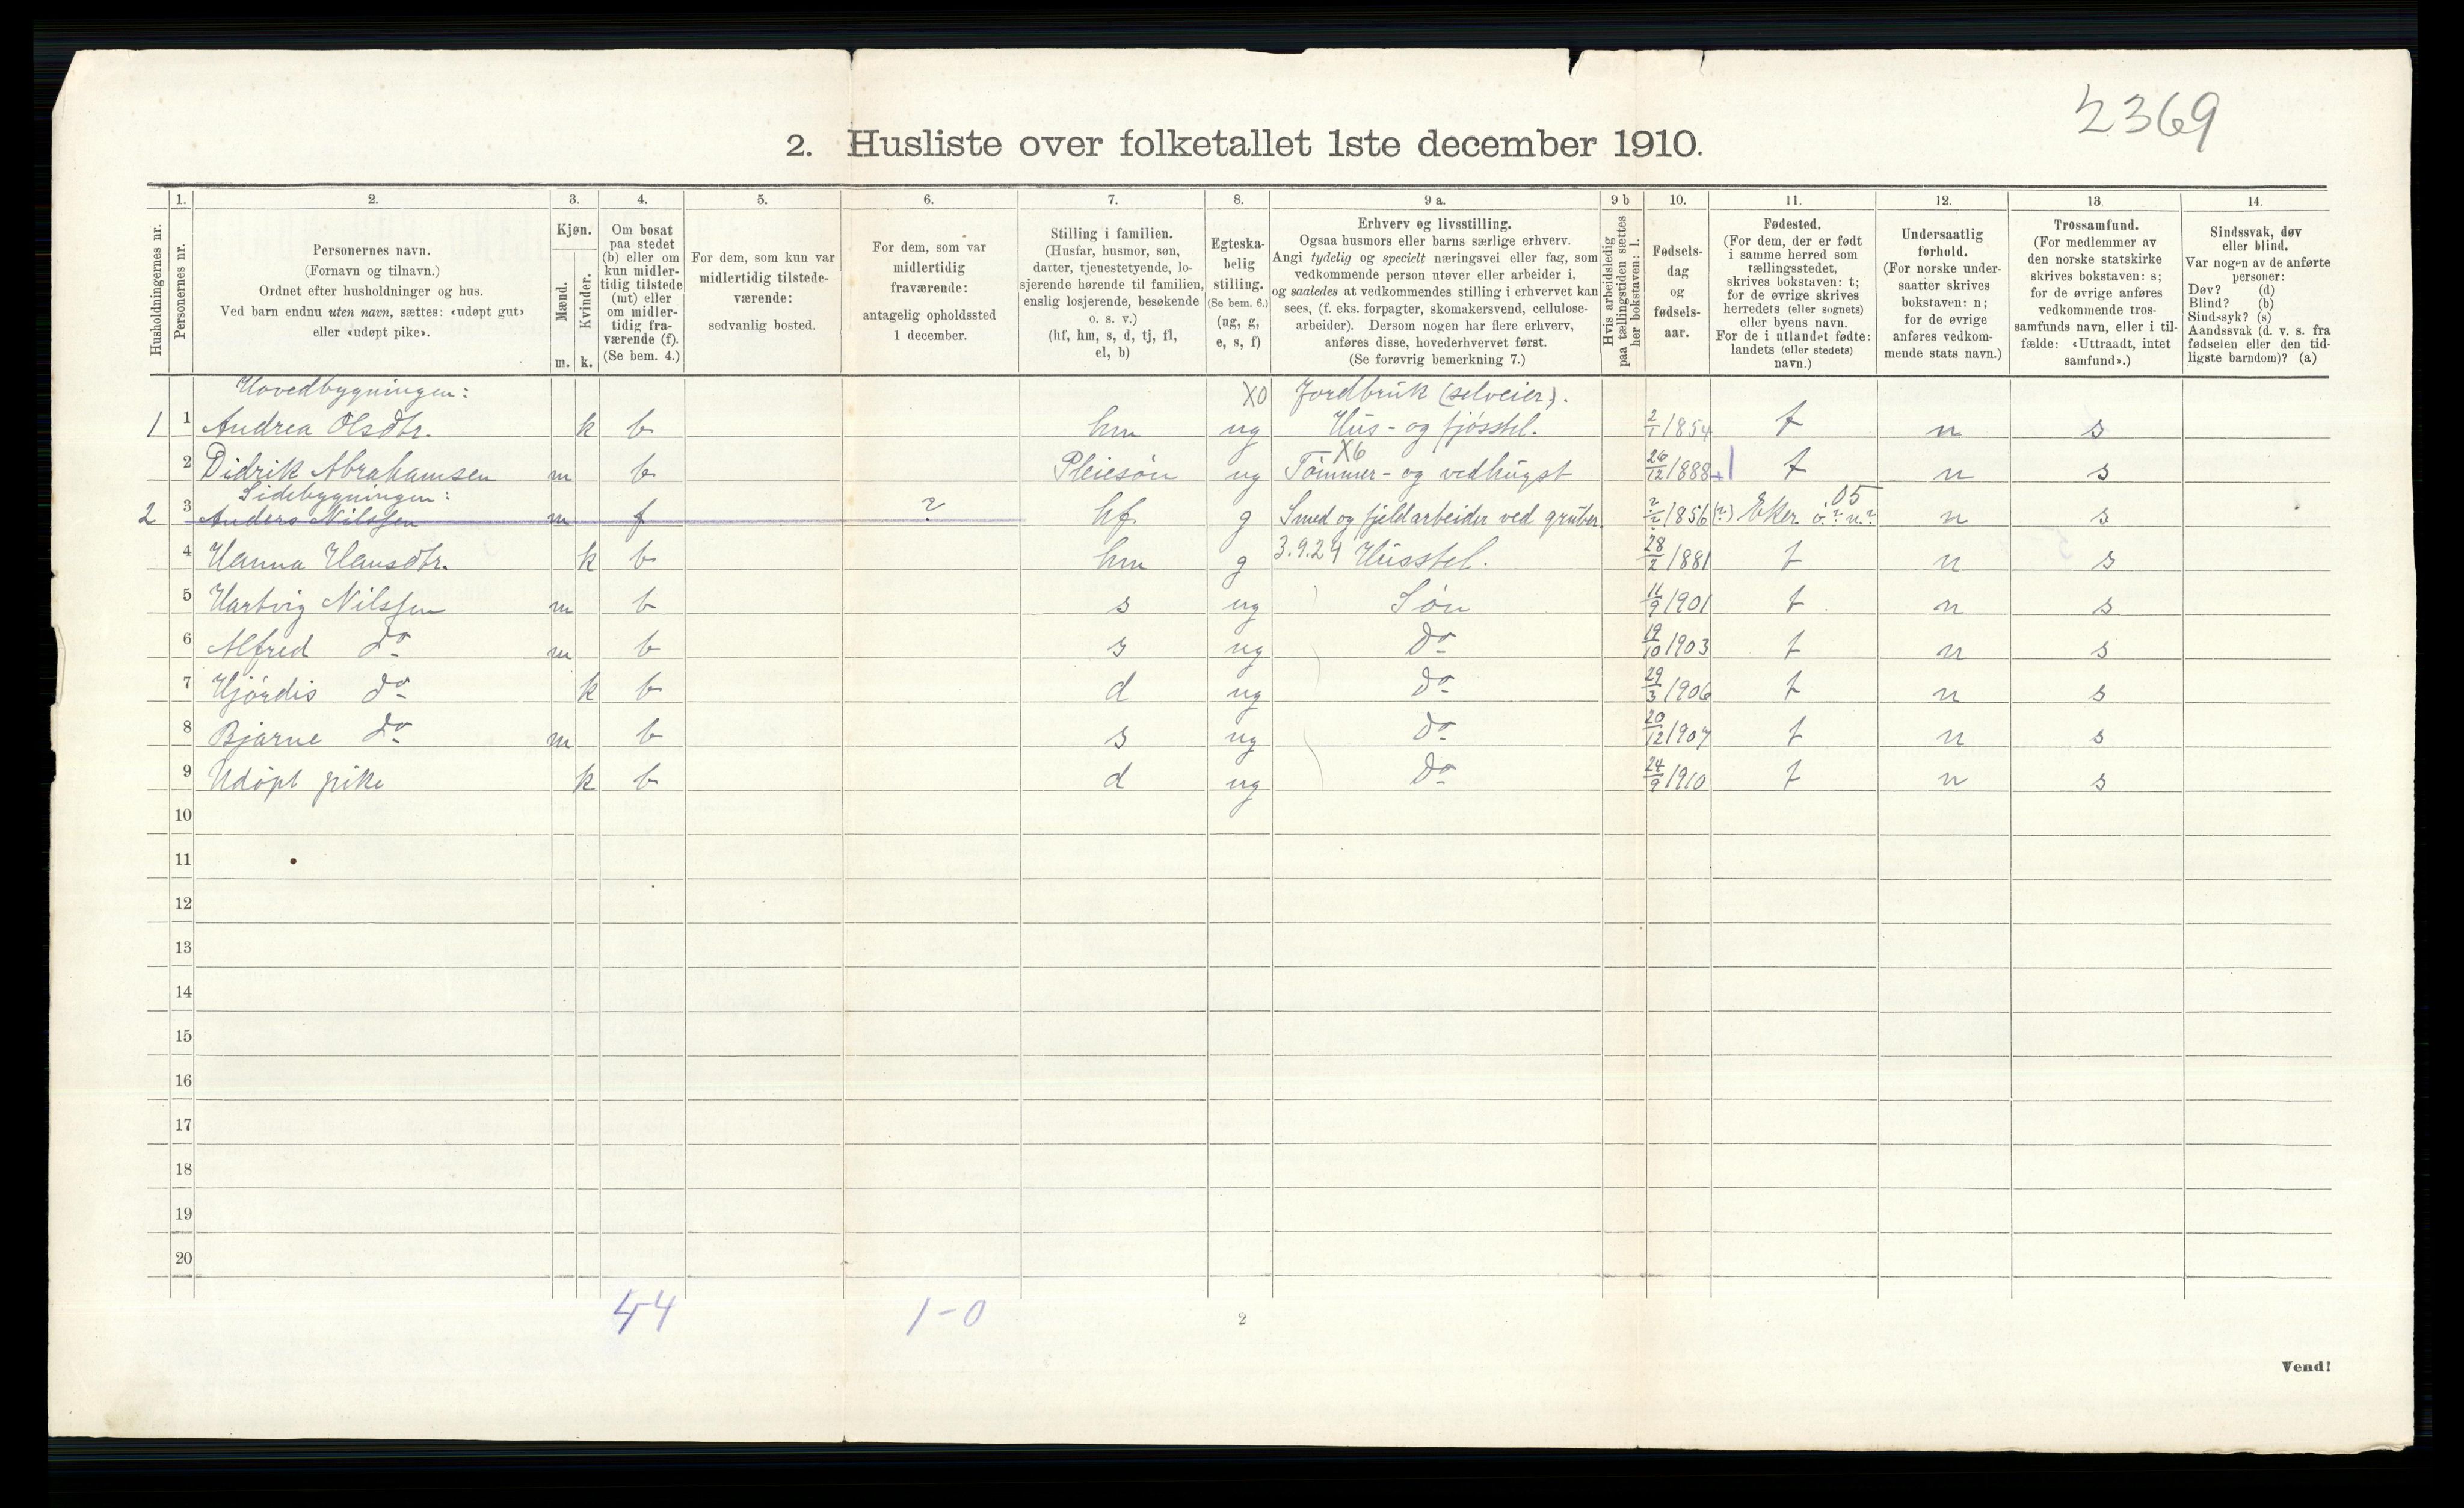 2369
2. Husliste over folketallet 1ste december 1910.
Husholdningernes nr.
1.
Personernes nr.
2.
Personernes navn.
(Fornavn og tilnavn.)
Ordnet efter husholdninger og hus.
Ved barn endnu uten navn, sættes: «udøpt gut»
eller «udøpt pike».
3.
Kjøn.
Mænd.
m.
Kvinder.
k.
4.
Om bosat
paa stedet
(b) eller om
kun midler-
tidig tilstede
(mt) eller
om midler-
tidig fra-
værende (f).
(Se bem. 4.)
5.
For dem, som kun var
midlertidig tilstede-
værende:
sedvanlig bosted.
6.
For dem, som var
midlertidig
fraværende:
antagelig opholdssted
1 december.
7.
Stilling i familien.
(Husfar, husmor, søn,
datter, tjenestetyende, lo-
sjerende hørende til familien,
enslig losjerende, besøkende
o. s. v.)
(hf, hm, s, d, tj, fl,
el, b)
8.
Egteska-
belig
stilling.
(Se bem. 6.)
(ug, g,
e, s, f)
9 a.
Erhverv og livsstilling.
Ogsaa husmors eller barns særlige erhverv.
Angi tydelig og specielt næringsvei eller fag, som
vedkommende person utøver eller arbeider i,
og saaledes at vedkommendes stilling i erhvervet kan
sees, (f. eks. forpagter, skomakersvend, cellulose-
arbeider). Dersom nogen har flere erhverv,
anføres disse, hovederhvervet først.
(Se forøvrig bemerkning 7.)
9 b
Hvis arbeidsledig
paa tællingstiden sættes
her bokstaven: l.
10.
Fødsels-
dag
og
fødsels-
aar.
11.
Fødested.
(For dem, der er født
i samme herred som
tællingsstedet,
skrives bokstaven: t;
for de øvrige skrives
herredets (eller sognets)
eller byens navn.
For de i utlandet fødte:
landets (eller stedets)
navn.)
12.
Undersaatlig
forhold.
(For norske under-
saatter skrives
bokstaven: n;
for de øvrige
anføres vedkom-
mende stats navn.)
13.
Trossamfund.
(For medlemmer av
den norske statskirke
skrives bokstaven: s;
for de øvrige anføres
vedkommende tros-
samfunds navn, eller i til-
fælde: «Uttraadt, intet
samfund».)
14.
Sindssvak, døv
eller blind.
Var nogen av de anførte
personer:
Døv? (d)
Blind? (b)
Sindssyk? (s)
Aandssvak (d. v. s. fra
fødselen eller den tid-
ligste barndom)? (a)
Hovedbygningen: X0 Jordbruk (selveier).
1 1 Andrea Olsdtr. k b hm ug Hus- og fjøsstel. 2/1 1854 t n s
X6
2 Didrik Abrahamsen m b Pleiesøn ug Tømmer- og vedhugst 26/12 1888 t n s
Sidebygningen: 05
2 3 Anders Nilssen m f ? hf g Smed og fjeldarbeider ved gruber. ?/? 1856 (?) Eker ø.? n.? n s
4 Hanna Hansdtr. k b hm g 3.9.24 Husstel. 28/2 1881 t n s
5 Hartvig Nilssen m b s ug Søn 11/9 1901 t n s
6 Alfred do m b s ug do 19/10 1903 t n s
7 Hjørdis do k b d ug do 29/3 1906 t n s
8 Bjarne do m b s ug do 20/12 1907 t n s
9 Udøpt pike k b d ug do 24/9 1910 t n s
10
11
12
13
14
15
16
17
18
19
20
44 1-0
2
Vend!